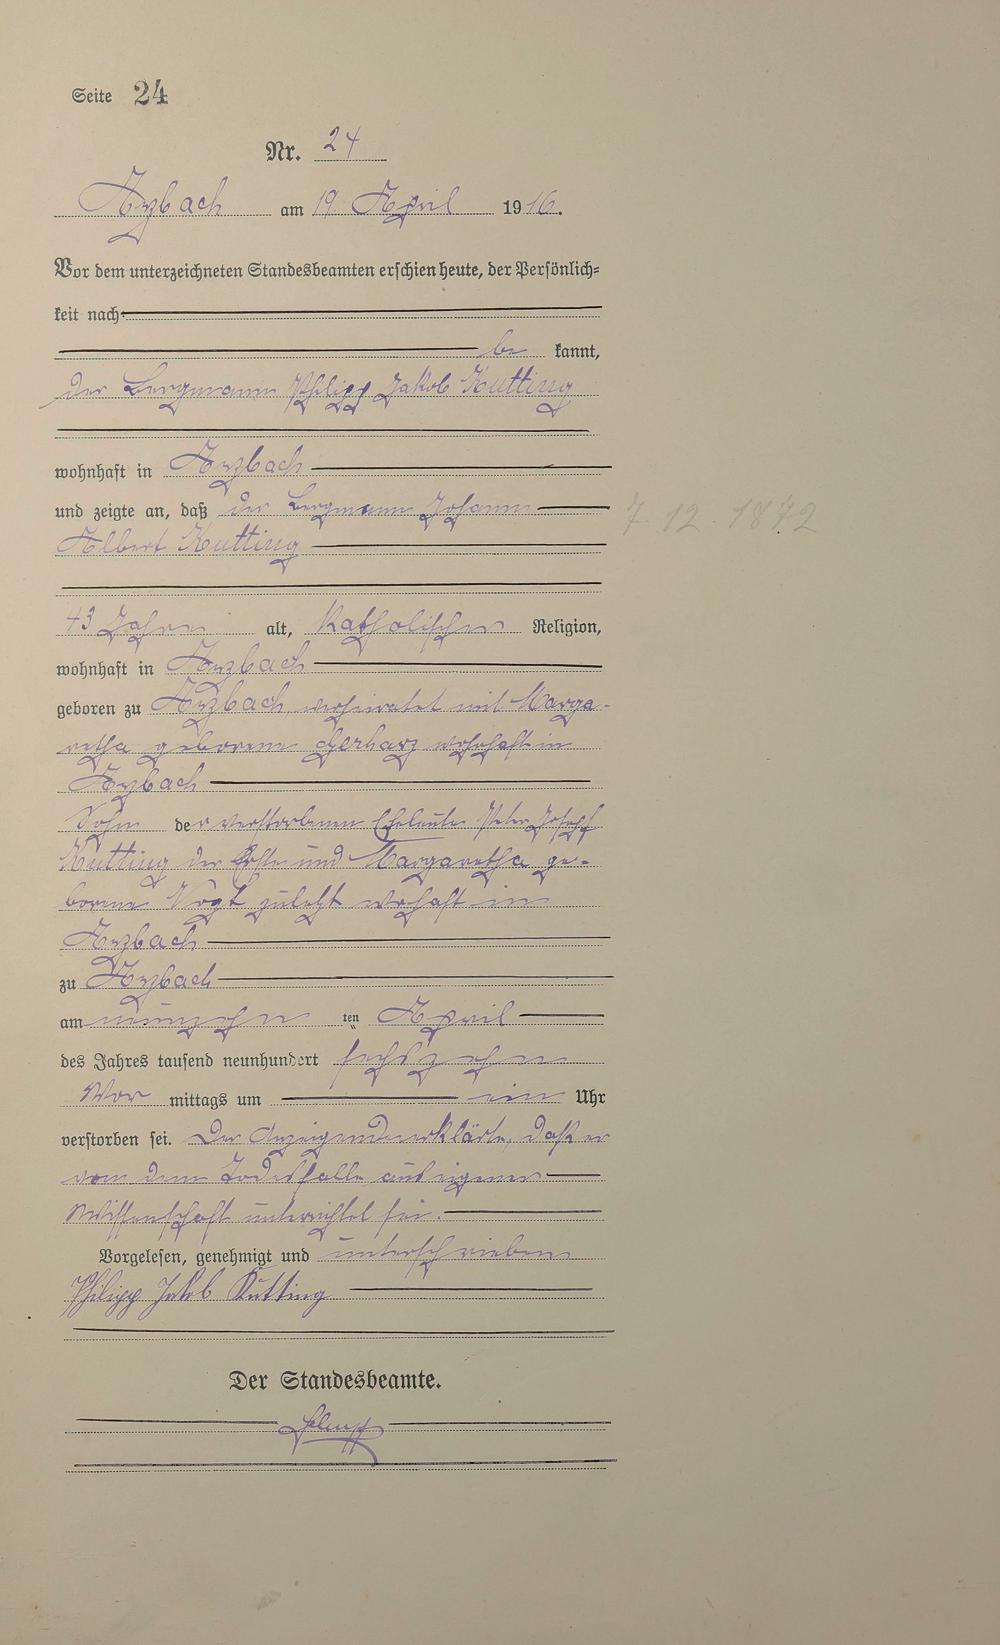 Seite 24
Nr. 24
Arzbach am 19 April 1916.
Vor dem unterzeichneten Standesbeamten erschien heute, der Persönlich=
keit nach
be kannt,
der Bergmann Philipp Jakob Kutting
wohnhaft in Arzbach
und zeigte an, daß der Bergmann Johann
Albert Kutting
43 Jahre alt, katholischer Religion,
wohnhaft in Arzbach
geboren zu Arzbach verheiratet mit Marga-
retha geborene Gerharz wohnhaft in
Arzbach
Sohn der verstorbenen Eheleute Peter Joseph
Kutting der Erste und Margaretha ge-
borene Vogt zuletzt wohnhaft in
Arzbach
zu Arzbach
am neunzehn ten April
des Jahres tausend neunhundert sechszehn
Vor mittags um ein Uhr
verstorben sei. Der Anzeigende erklärte, daß er
von dem Todesfalle aus eigener
Wissenschaft unterrichtet sei.
Vorgelesen, genehmigt und unterschrieben
Philipp Jakob Kutting
Der Standesbeamte.
7. 12. 1872